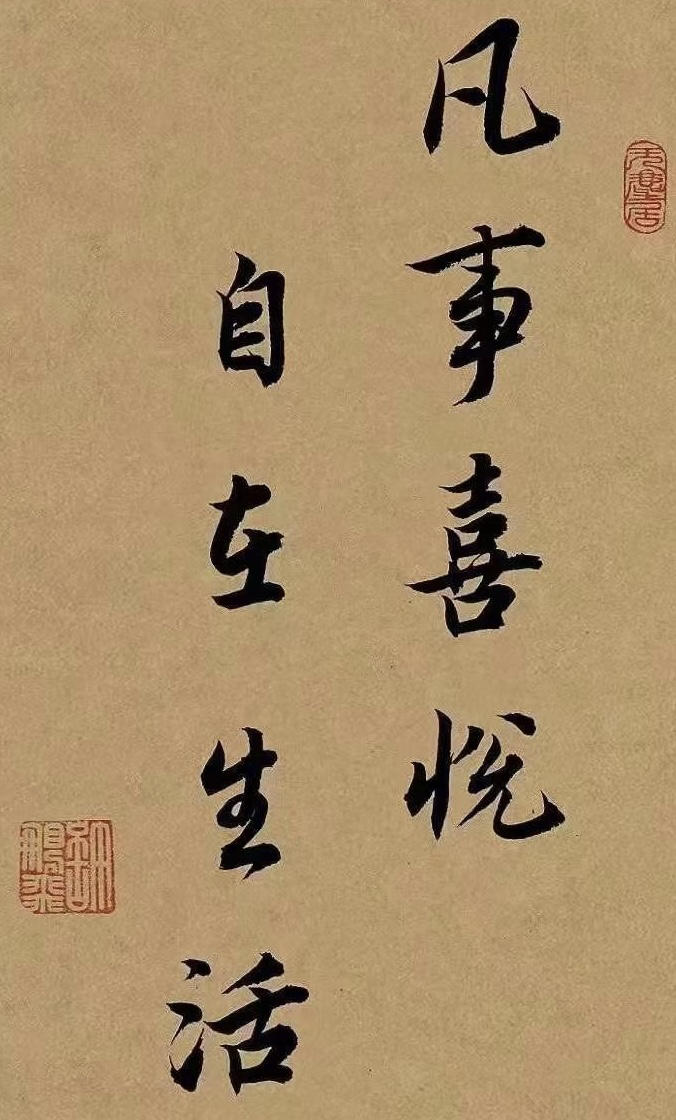 凡事喜悦
自在生活